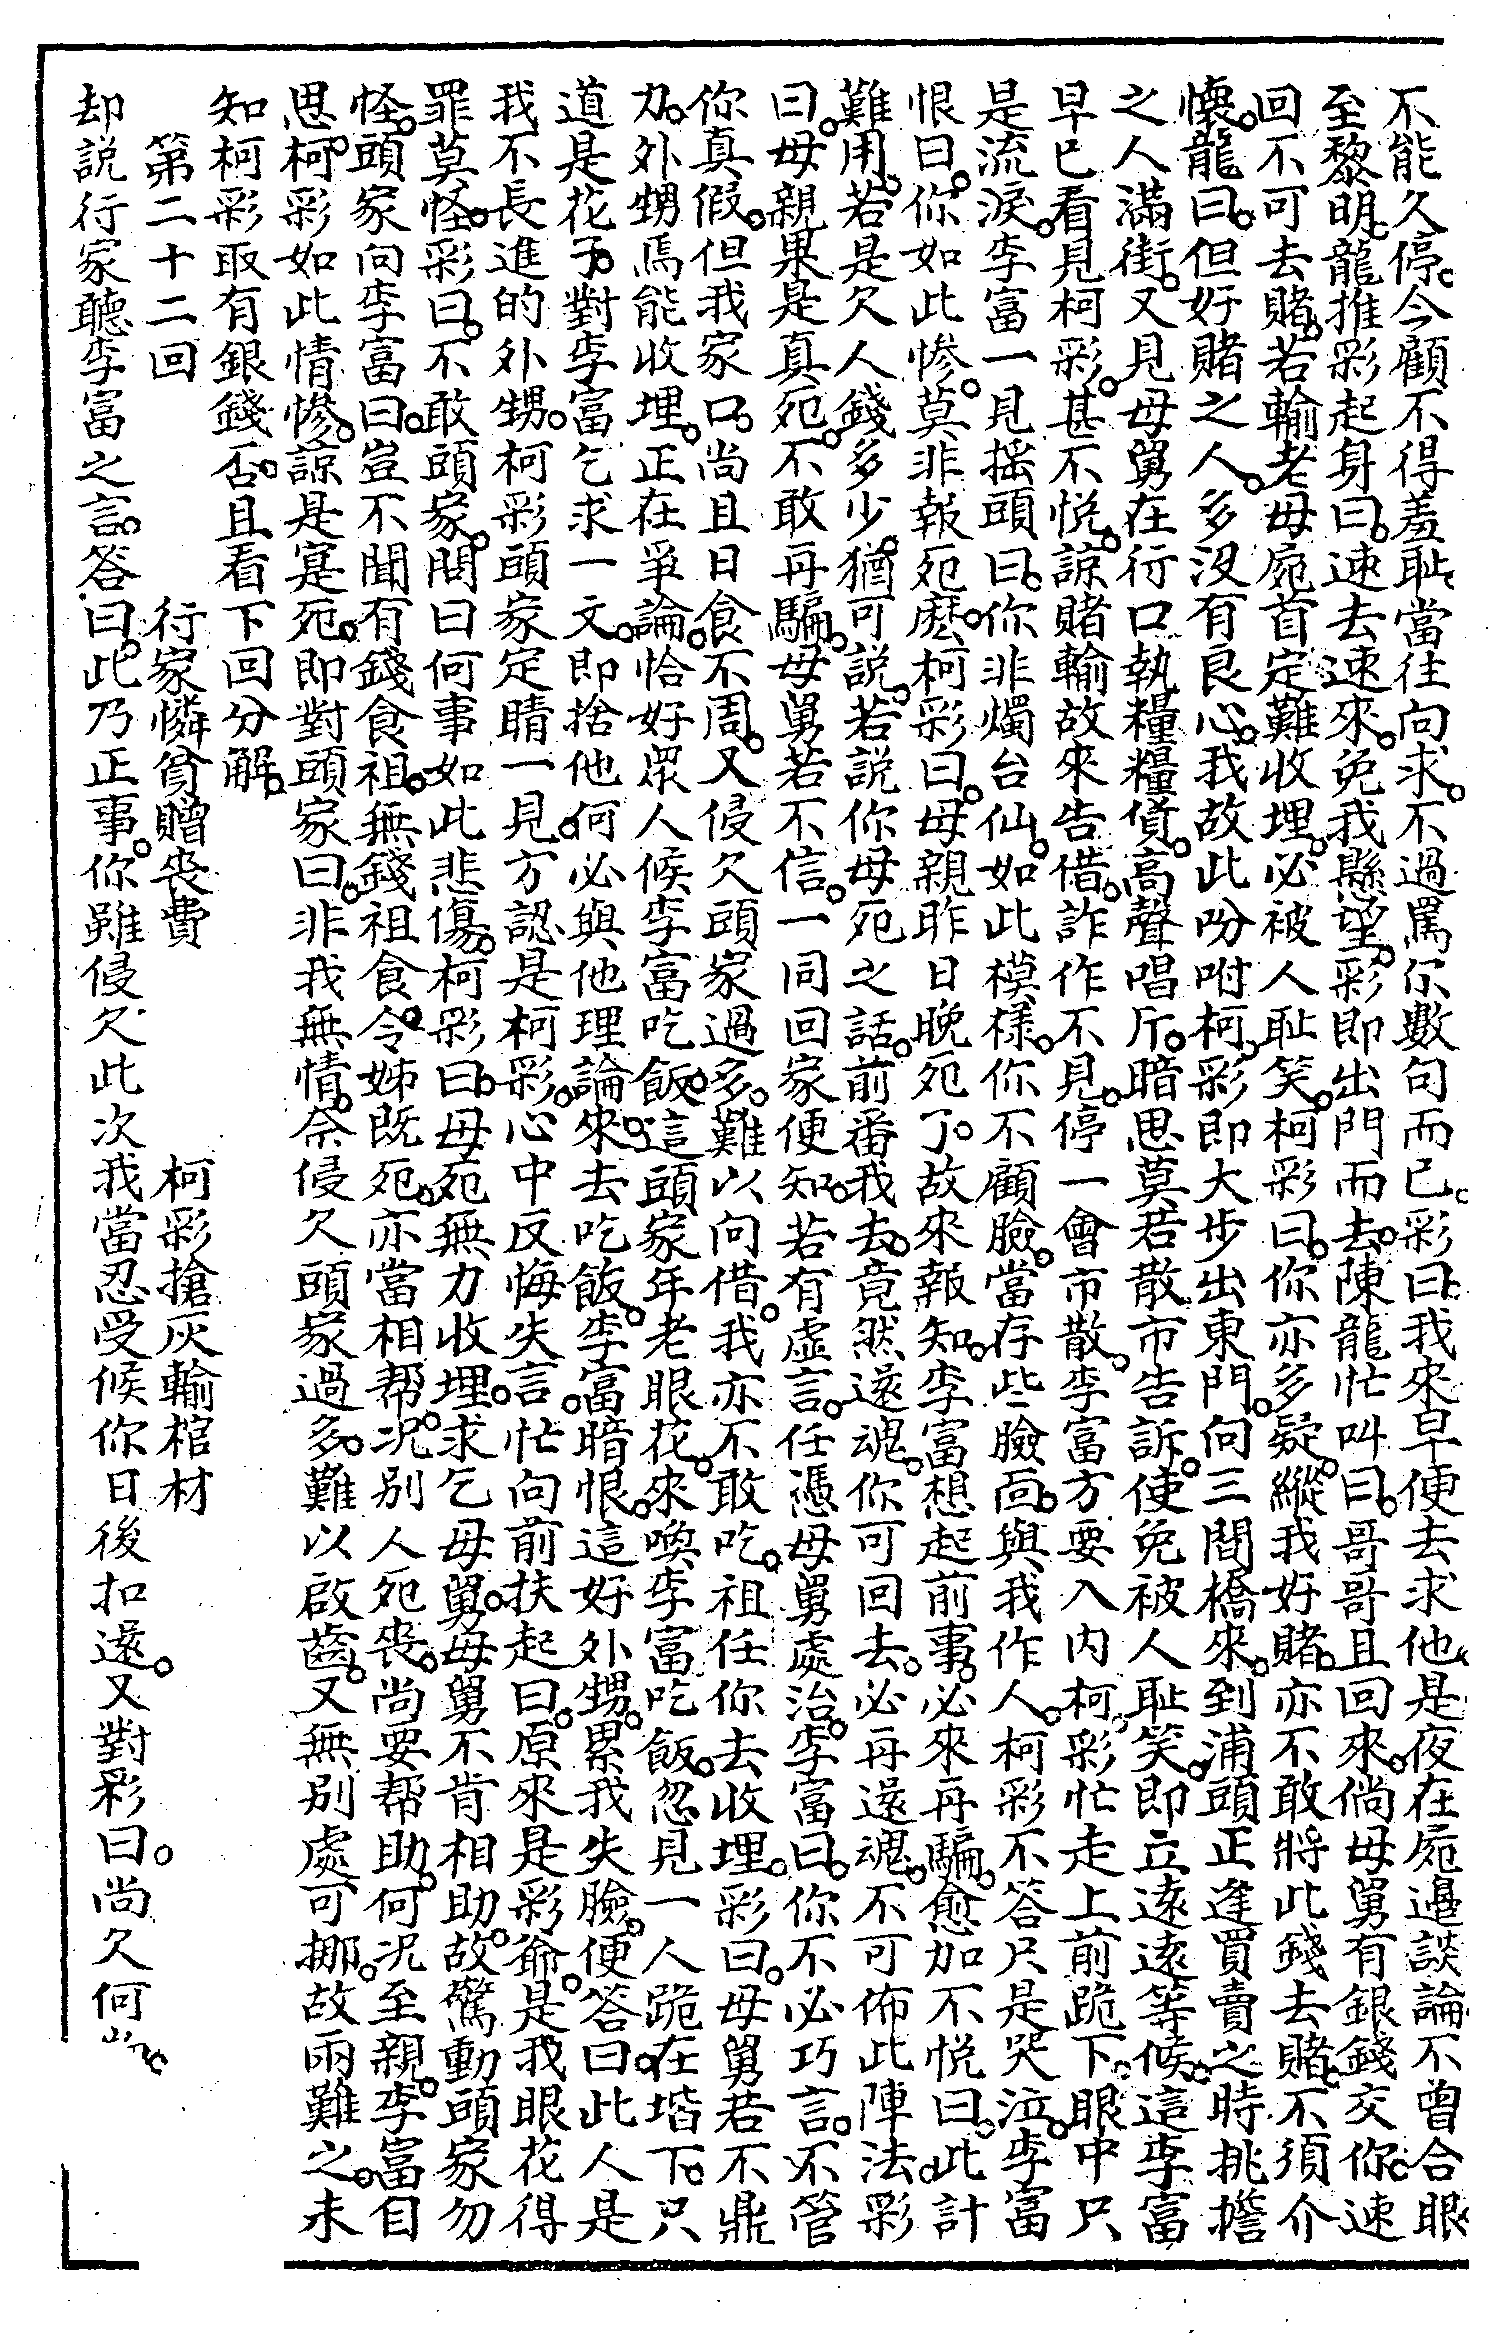 不能久停。今顧不得羞耻。當往向求。不過罵你數句而已。彩曰。我來早便去求他。是夜在屍邊談論。不曾合眼。
至黎明。龍推彩起身曰。速去速來。免我懸望。彩即出門而去。陳龍忙叫曰。哥哥且回來。倘母舅有銀錢交你。速
回不可去賭。若輸老母屍首定難收埋。必被人耻笑。柯彩曰。你亦多疑。縱我好賭。亦不敢將此錢去賭。不須介
懷。龍曰。但好賭之人。多沒有良心。我故此吩咐柯。彩即大步出東門。向三間橋來。到浦頭正逢買賣之時。挑擔
之人滿街。又見母舅在行口執糧糧賃。高聲唱斤。暗思莫若散市告訴。使免被人耻笑。即立遠遠等候。這李富
早已看見柯彩。甚不悅。諒賭輸故來告借。詐作不見。停一會市散。李富方要入內。柯彩忙走上前跪下。眼中只
是流淚。李富一見搖頭曰。你非燭台仙。如此模樣。你不顧臉。當存些臉面。與我作人。柯彩不答只是哭泣。李富
恨曰。你如此慘。莫非報死麽。柯彩曰。母親昨日晚死了。故來報知。李富想起前事。必來再騙。愈加不悅曰。此計
難用。若是欠人錢多少。猶可說。若說你母死之話。前番我去。竟然還魂。你可回去。必再還魂。不可佈此陣法。彩
曰。母親果是真死。不敢再騙。母舅若不信。一同回家便知。若有虛言。任憑母舅處治。李富曰。你不必巧言。不管
你真假。但我家口。尚且日食不周。又侵欠頭家過多。難以向借。我亦不敢吃。祖任你去收埋。彩曰。母舅若不鼎
力。外甥焉能收埋。正在爭論。恰好眾人候李富吃飯。這頭家年老眼花。來喚李富吃飯。忽見一人跪在堦下。只
道是花子。對李富乞求一文。即捨他何必與他理論。來去吃飯。李富暗恨。這好外甥。累我失臉。便答曰。此人是
我不長進的外甥。柯彩頭家定睛一見。方認是柯彩。心中反悔失言。忙向前扶起曰。原來是彩爺。是我眼花得
罪莫怪。彩曰。不敢頭家。問曰何事如此悲傷。柯彩曰。母死無力收埋。求乞母舅。母舅不肯相助。故驚動頭家勿
怪。頭家向李富曰。豈不聞有錢食祖。無錢祖食。令姊既死。亦當相帮。况別人死喪。尚要帮助。何况至親。李富自
思。柯彩如此情慘。諒是寔死。即對頭家曰。非我無情。奈侵欠頭家過多。難以啟齒。又無別處可挪。故兩難之。未
知柯彩取有銀錢否。且看下回分解。
第二十二回　行家憐貧贈喪費　柯彩搶灰輸棺材
却說行家聽李富之言。答曰。此乃正事。你雖侵欠此次我當忍受候你日後扣還。又對彩曰。尚欠何